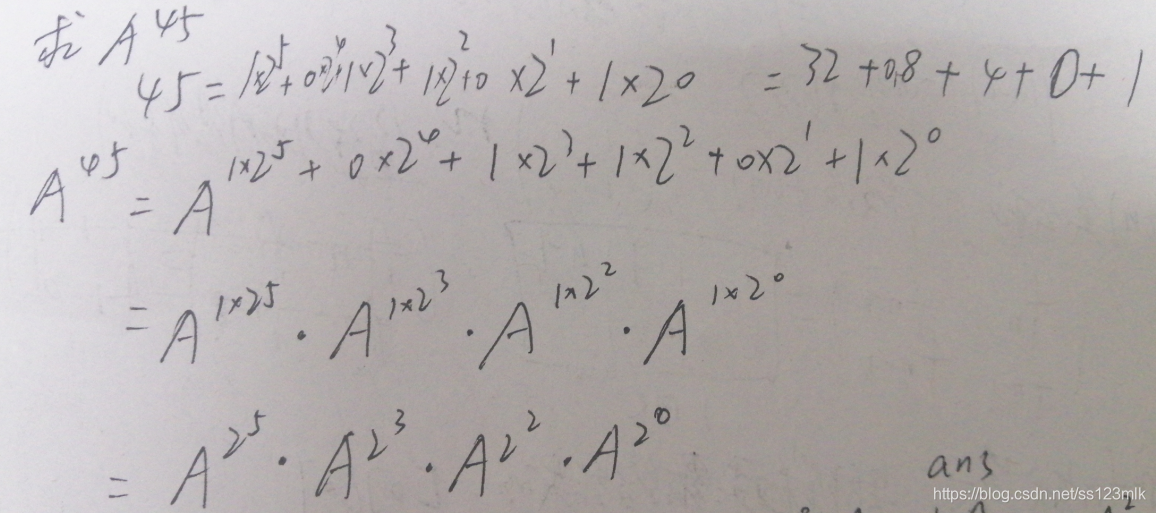 求 A^45
45 = 1×2^5 + 0×2^4 + 1×2^3 + 1×2^2 + 0×2^1 + 1×20 = 32 + 0,8 + 4 + 0 + 1
A^45 = A^1×2^5 + 0×2^4 + 1×2^3 + 1×2^2 + 0×2^1 + 1×2^0
= A^1×2^5 · A^1×2^3 · A^1×2^2 · A^1×2^0
= A^2^5 · A^2^3 · A^2^2 · A^2^0
ans
https://blog.csdn.net/ss123mlk